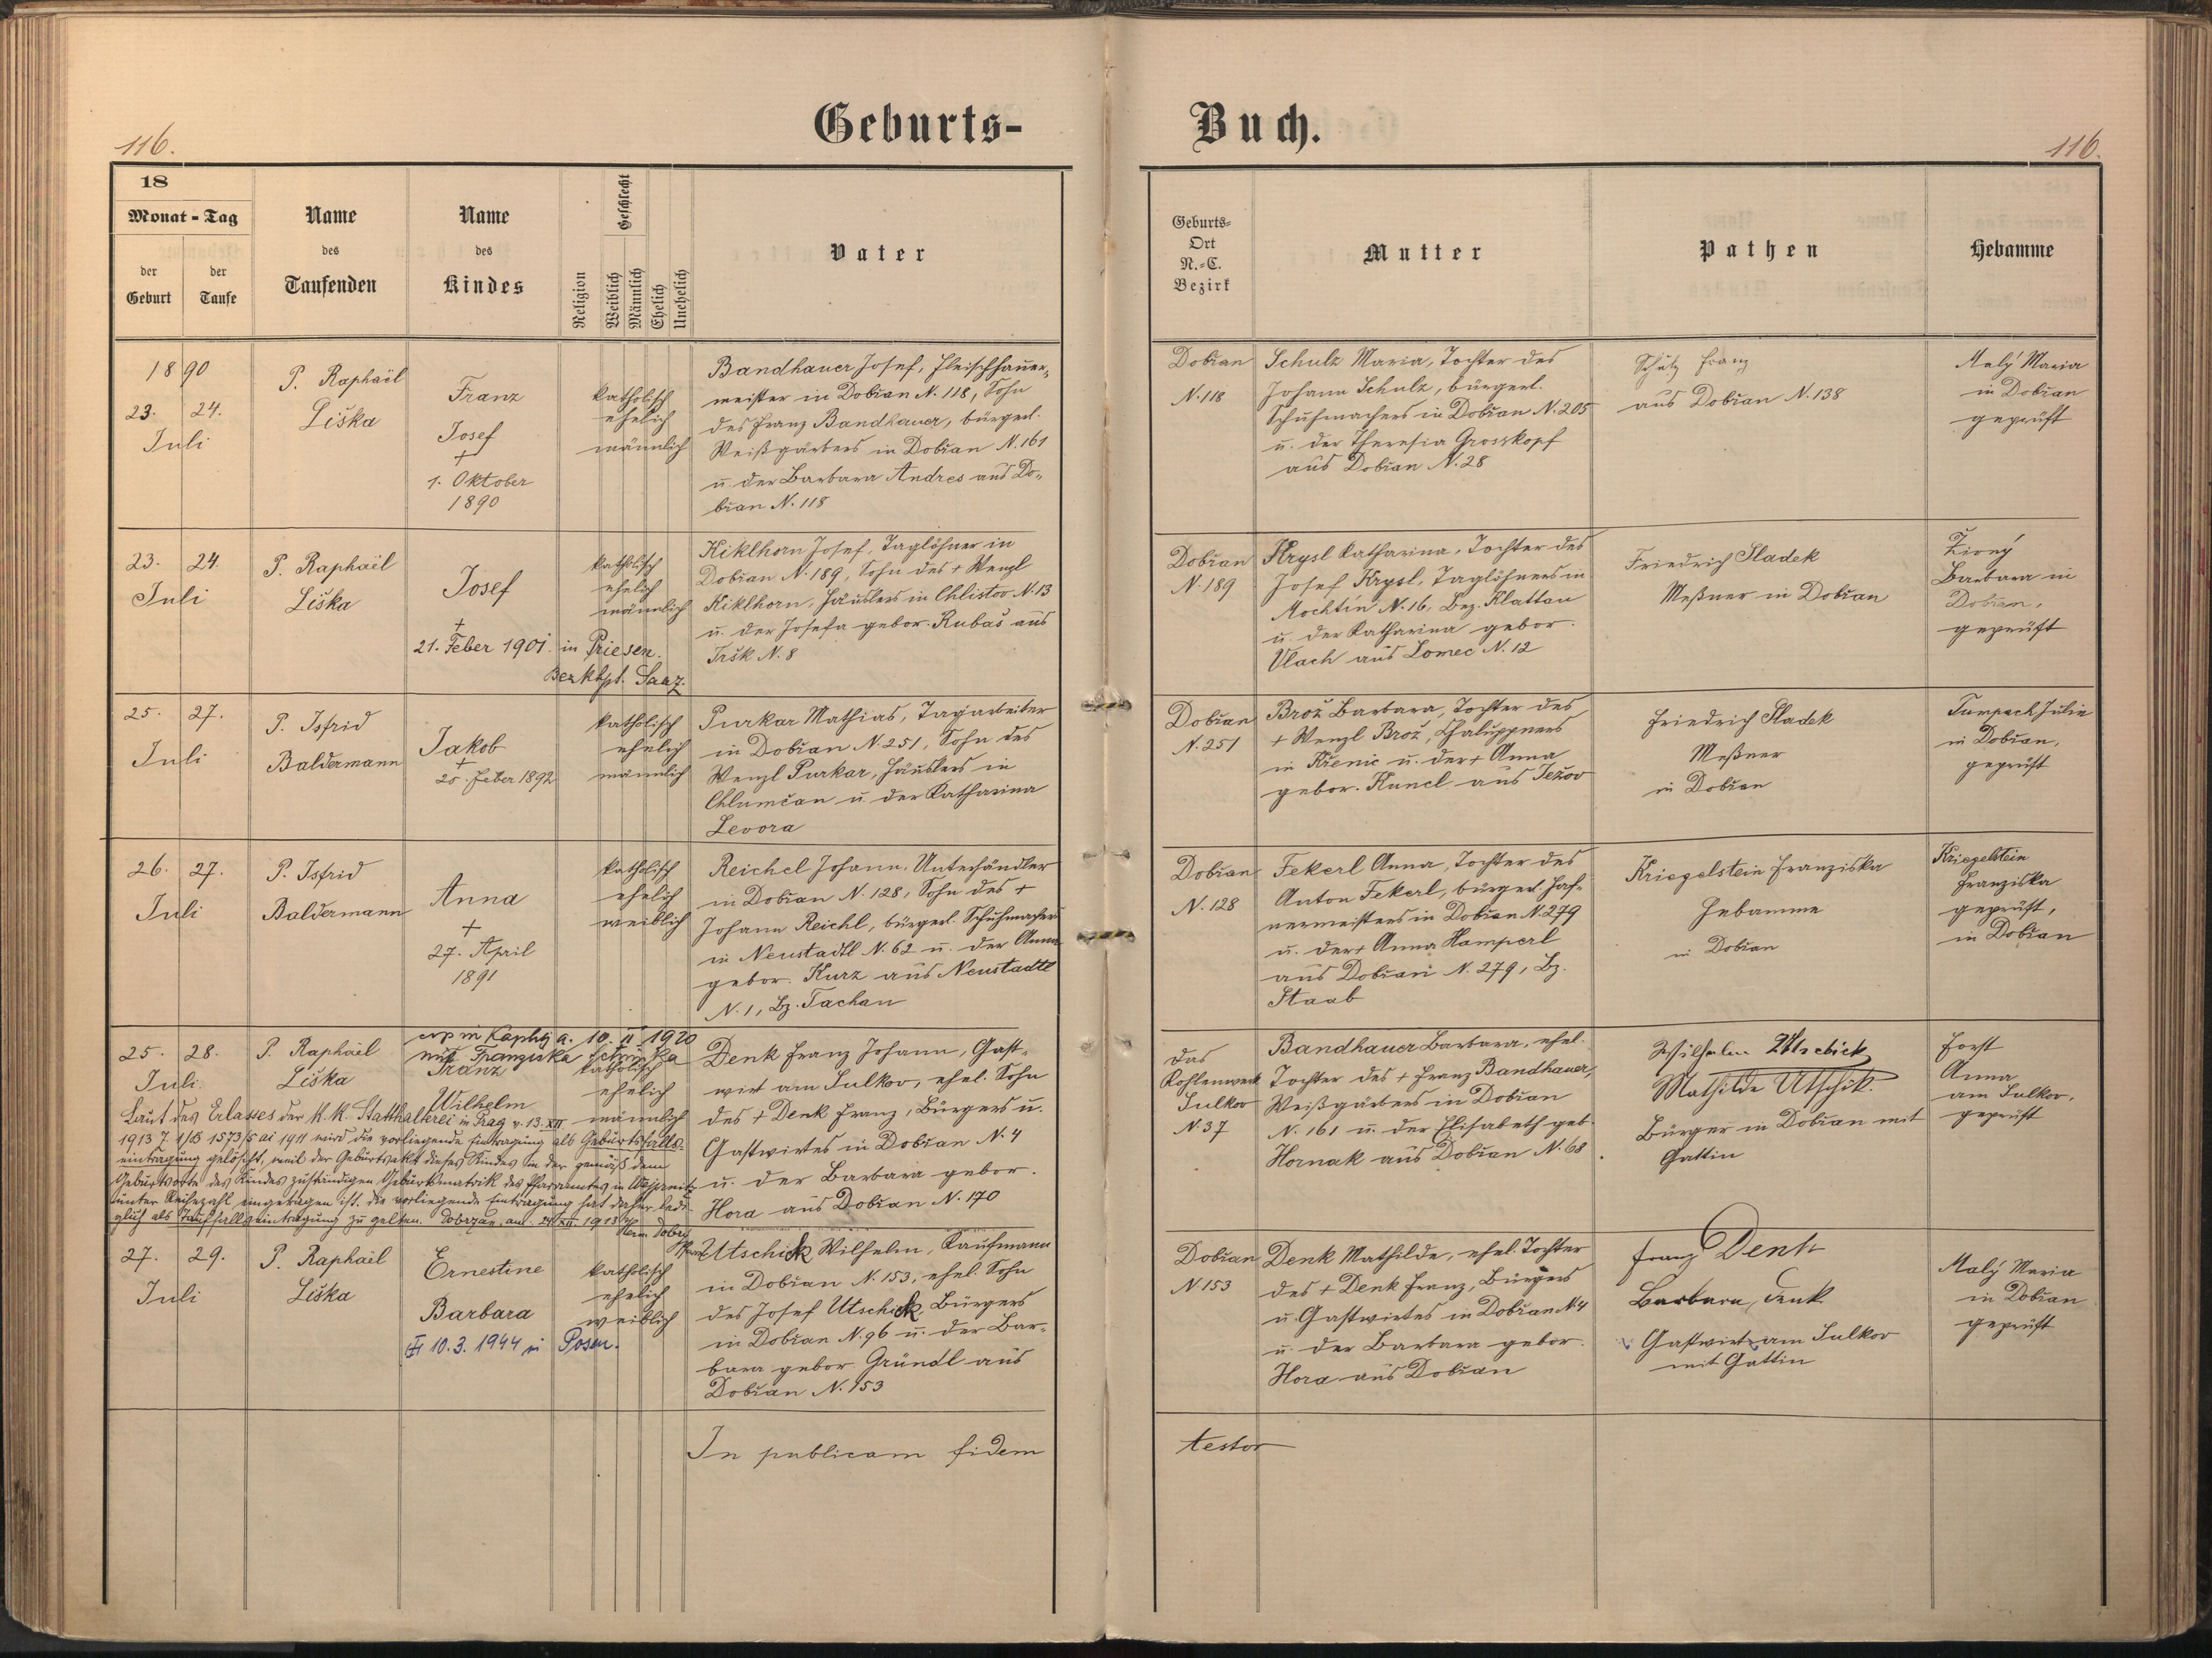 116.
Geburts-
Buch.
116.
18
Monat - Tag
der
Geburt
der
Taufe
Name
des
Taufenden
Name
des
Kindes
Religion
Geschlecht
Weiblich
Männlich
Ehelich
Unehelich
Vater
Geburts-
Ort
N.-C.
Bezirk
Mutter
Pathen
Hebamme
1890
23. 24.
Juli
P. Raphaël
Liška
Franz
Josef
+
1. Oktober
1890
katholisch
ehelich
männlich
Bandhauer Josef, Fleischhauer-
meister in Dobřan N. 118, Sohn
des Franz Bandhauer, bürgerl.
Weißgärbers in Dobřan N. 161
u. der Barbara Andres aus Do-
břan N. 118
Dobřan
N. 118
Schulz Maria, Tochter des
Johann Schulz, bürgerl.
Schuhmachers in Dobřan N. 205
u. der Theresia Grosskopf
aus Dobřan N. 28
Schulz Franz
aus Dobřan N. 138
Malý Maria
in Dobřan
geprüft
23. 24.
Juli
P. Raphaël
Liška
Josef
+
21. Feber 1901 in Priesen.
Bezkhpt. Saaz.
katholisch
ehelich
männlich
Kiklhorn Josef, Taglöhner in
Dobřan N. 189, Sohn des + Wenzl
Kiklhorn, Häuslers in Chlistov N. 13
u. der Josefa gebor. Rubaš aus
Tršk N. 8
Dobřan
N. 189
Krysl Katharina, Tochter des
Josef Krysl, Taglöhners in
Mochtín N. 16, Bez. Klattau
u. der Katharina gebor.
Vlach aus Lomec N. 12
Friedrich Sladek
Meßner in Dobřan
Barbara in
Dobřan,
geprüft
25. 27.
Juli
P. Isfrid
Baldermann
Jakob
+
25. Feber 1892
katholisch
ehelich
männlich
Purkar Mathias, Tagarbeiter
in Dobřan N. 251, Sohn des
Wenzl Purkar, Häuslers in
Chlumčan u. der Katharina
Levora
Dobřan
N. 251
Brož Barbara, Tochter des
+ Wenzl Brož, Chaluppners
in Křenic u. der + Anna
gebor. Kuncl aus Ježov
Friedrich Sladek
Meßner
in Dobřan
Julie
in Dobřan,
geprüft
26. 27.
Juli
P. Isfrid
Baldermann
Anna
+
27. April
1891
katholisch
ehelich
weiblich
Reichel Johann, Unterhändler
in Dobřan N. 128, Sohn des +
Johann Reichl, bürgerl. Schuhmachers
in Neustadtl N. 62 u. der Anna
gebor. Kurz aus Neustadtl
N. 1, Bz. Tachau
Dobřan
N. 128
Fekerl Anna, Tochter des
Anton Fekerl, bürgerl. Haf-
nermeisters in Dobřan N. 279
u. der + Anna Hamperl
aus Dobřan N. 279, Bz.
Staab
Kriegelstein Franziska
Hebamme
in Dobřan
Kriegelstein
Franziska
geprüft,
in Dobřan
25. 28.
Juli
P. Raphaël
Liška
cop in a. 10. II. 1920
mit Franziska
Franz
Wilhelm
katholisch
ehelich
männlich
Laut des Erlasses der k. k. Statthalterei in Prag v. 13. XII
1913 Z. 1/B 1573/5 ai 1911 wird die vorliegende Eintragung als Geburtsfalls-
eintragung gelöscht, weil der Geburtsakt dieses Kindes in der gemäß dem
Geburtsorte des Kindes zuständigen Geburtsmatrik des Pfarramtes in
unter Reihezahl eingetragen ist. Die vorliegende Eintragung hat daher ledi-
glich als Tauffallseintragung zu gelten. Dobřan, am 24. XII. 1913.
Denk Franz Johann, Gast-
wirt am Sulkov, ehel. Sohn
des + Denk Franz, Bürgers u.
Gastwirtes in Dobřan N. 4
u. der Barbara gebor.
Hora aus Dobřan N. 170
Das
Kohlenwerk
Sulkov
N. 37
Bandhauer Barbara, ehel.
Tochter des + Franz Bandhauer,
Weißgärbers in Dobřan
N. 161 u. der Elisabeth geb.
Hornak aus Dobřan N. 68.
Wilhelm Utschick
Mathilde Utschik.
Bürger in Dobřan mit
Gattin
Forst
Anna
am Sulkov,
geprüft
27. 29.
Juli
P. Raphaël
Liška
Ernestine
Barbara
10. 3. 1944 in Posen.
katholisch
ehelich
weiblich
Utschick Wilhelm, Kaufmann
in Dobřan N. 153, ehel. Sohn
des Josef Utschick, Bürgers
in Dobřan N. 96 u. der Bar-
bara gebor. Gründl aus
Dobřan N. 153
Dobřan
N 153
Denk Mathilde, ehel. Tochter
des + Denk Franz, Bürgers
u. Gastwirtes in Dobřan N. 4
u. der Barbara gebor.
Hora aus Dobřan
Franz Denk
Barbara Denk
Gastwirt am Sulkov
mit Gattin
Malý Maria
in Dobřan
geprüft
In publicam fidem
testor